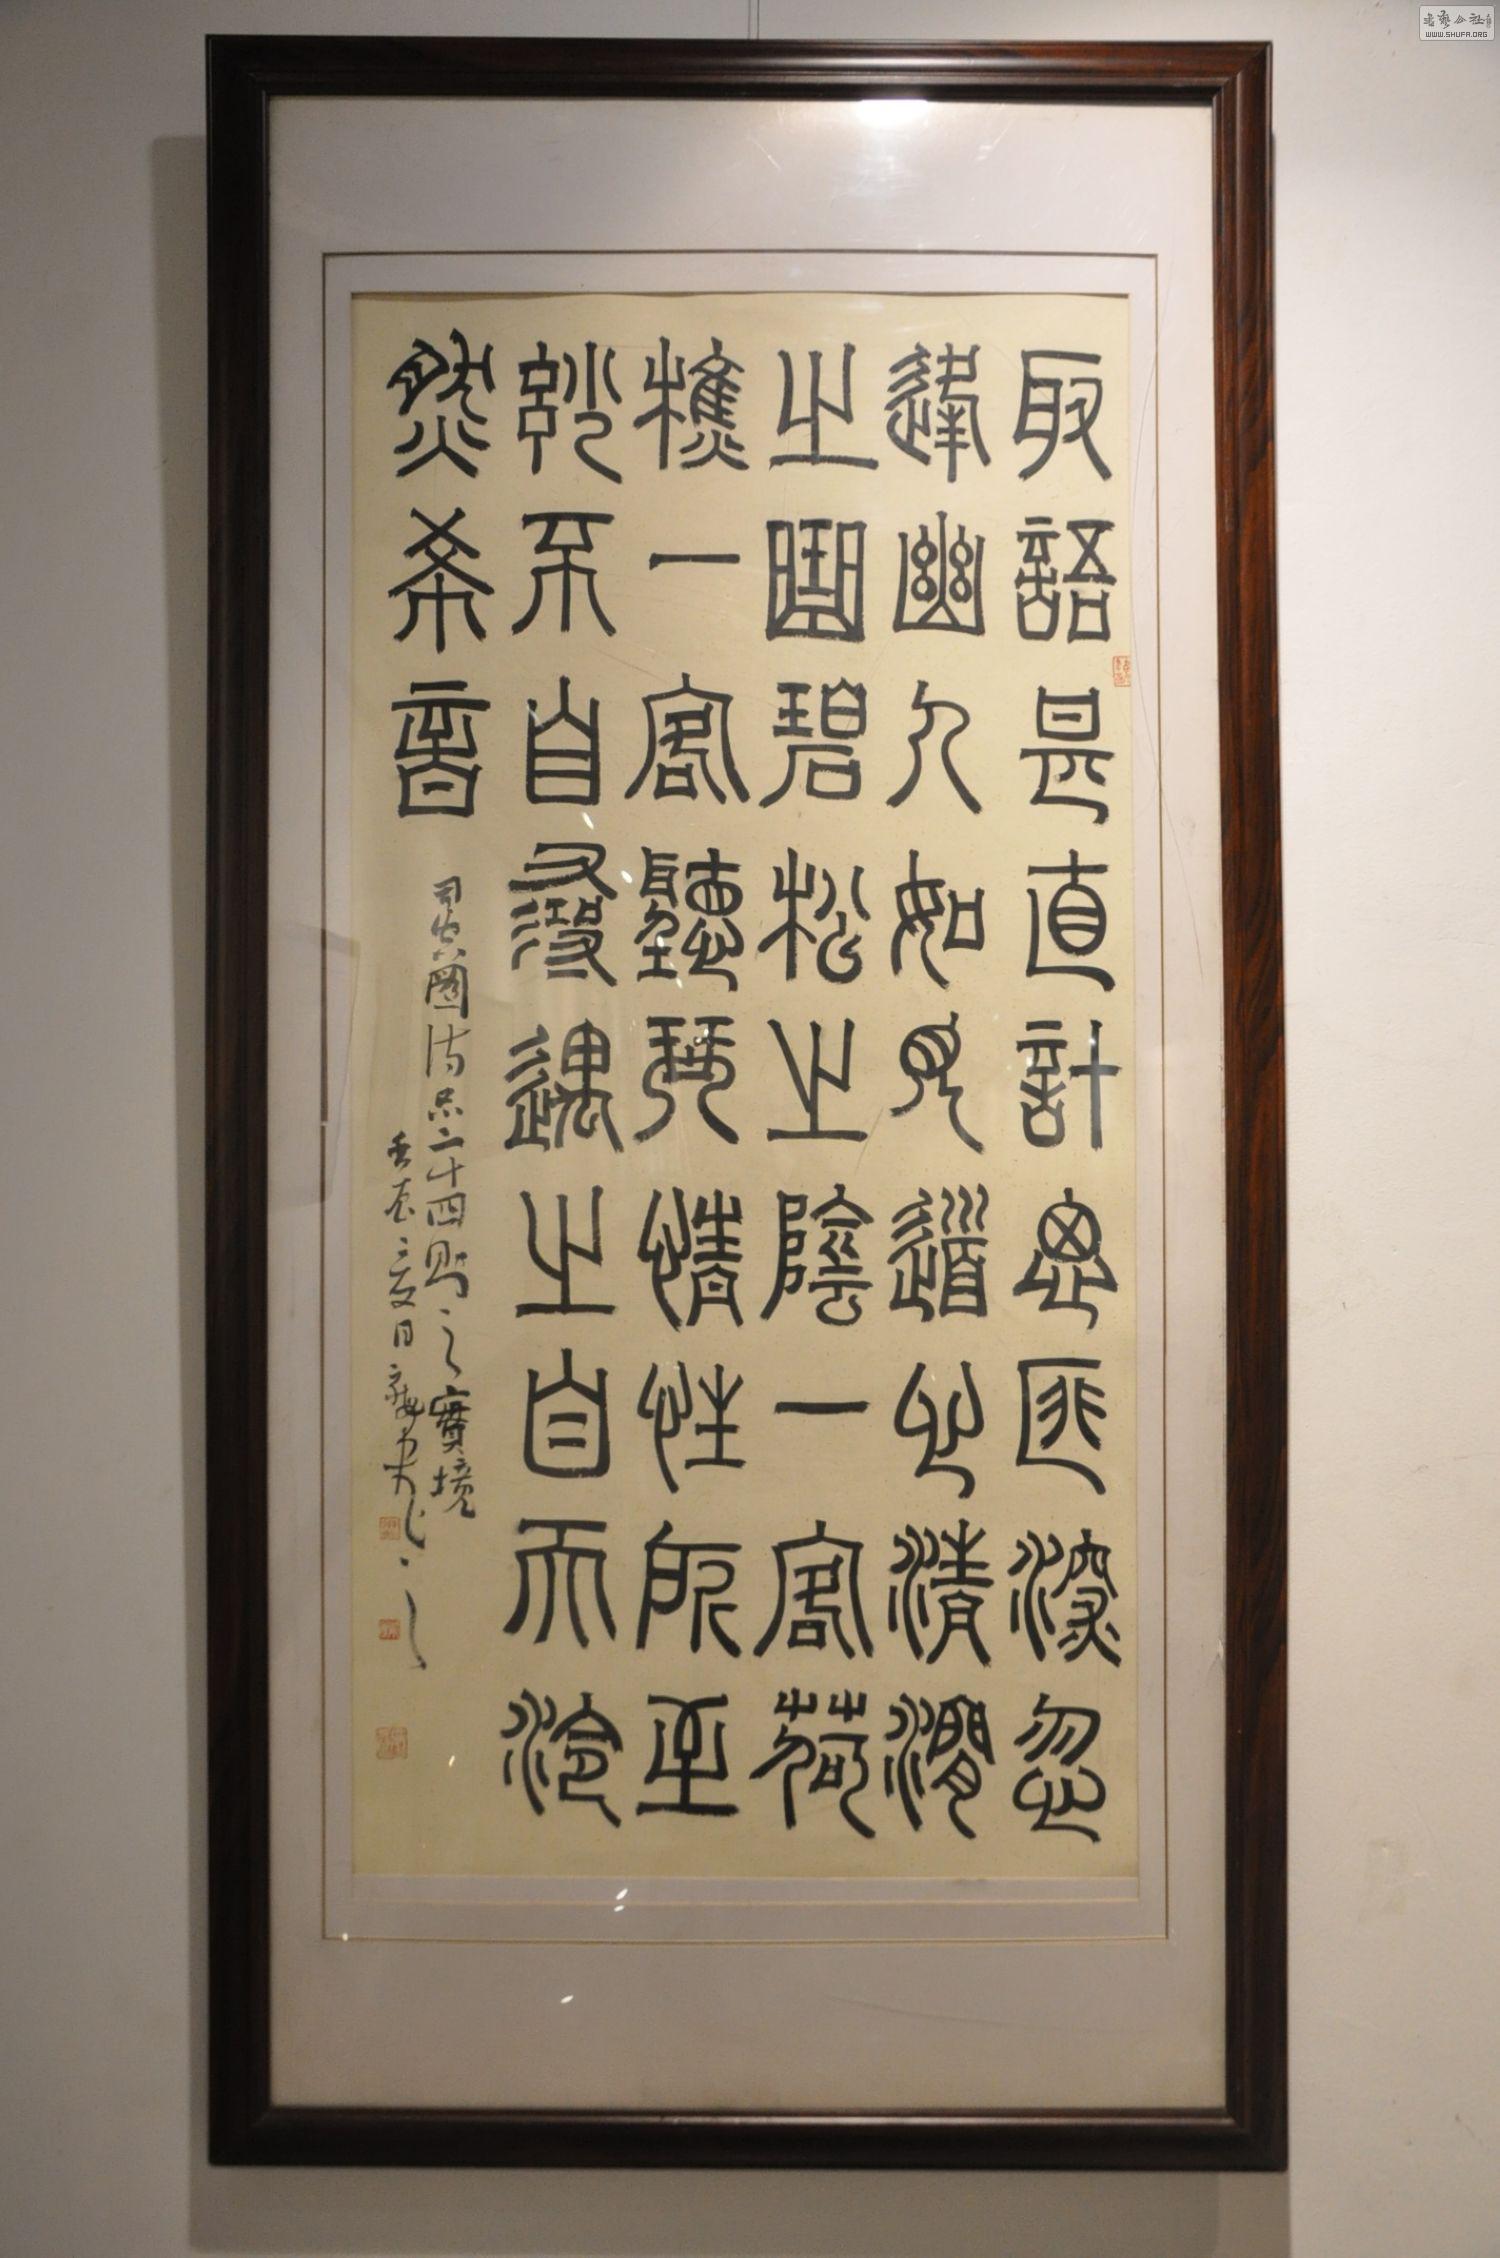 取語甚直計思匪深忽
逢幽人如見道心清澗
之曲碧松之陰一客荷
樵一客聽琴情性所至
妙不自尋遇之自天泠
然希音
司空圖詩品二十四則之實境
夏日
書藝公社
WWW.SHUFA.ORG